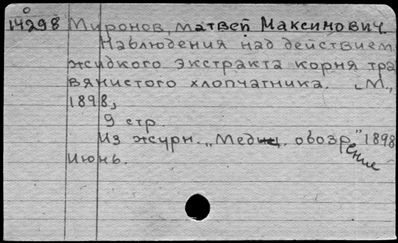 14298 Миронов, Матвей Максимович.
Наблюдения над действием
жидкого экстракта корня тра
вянистого хлопчатника. М.,
1898,
9 стр.
Из журн. "Медиц. обозрение" 1898
июнь.